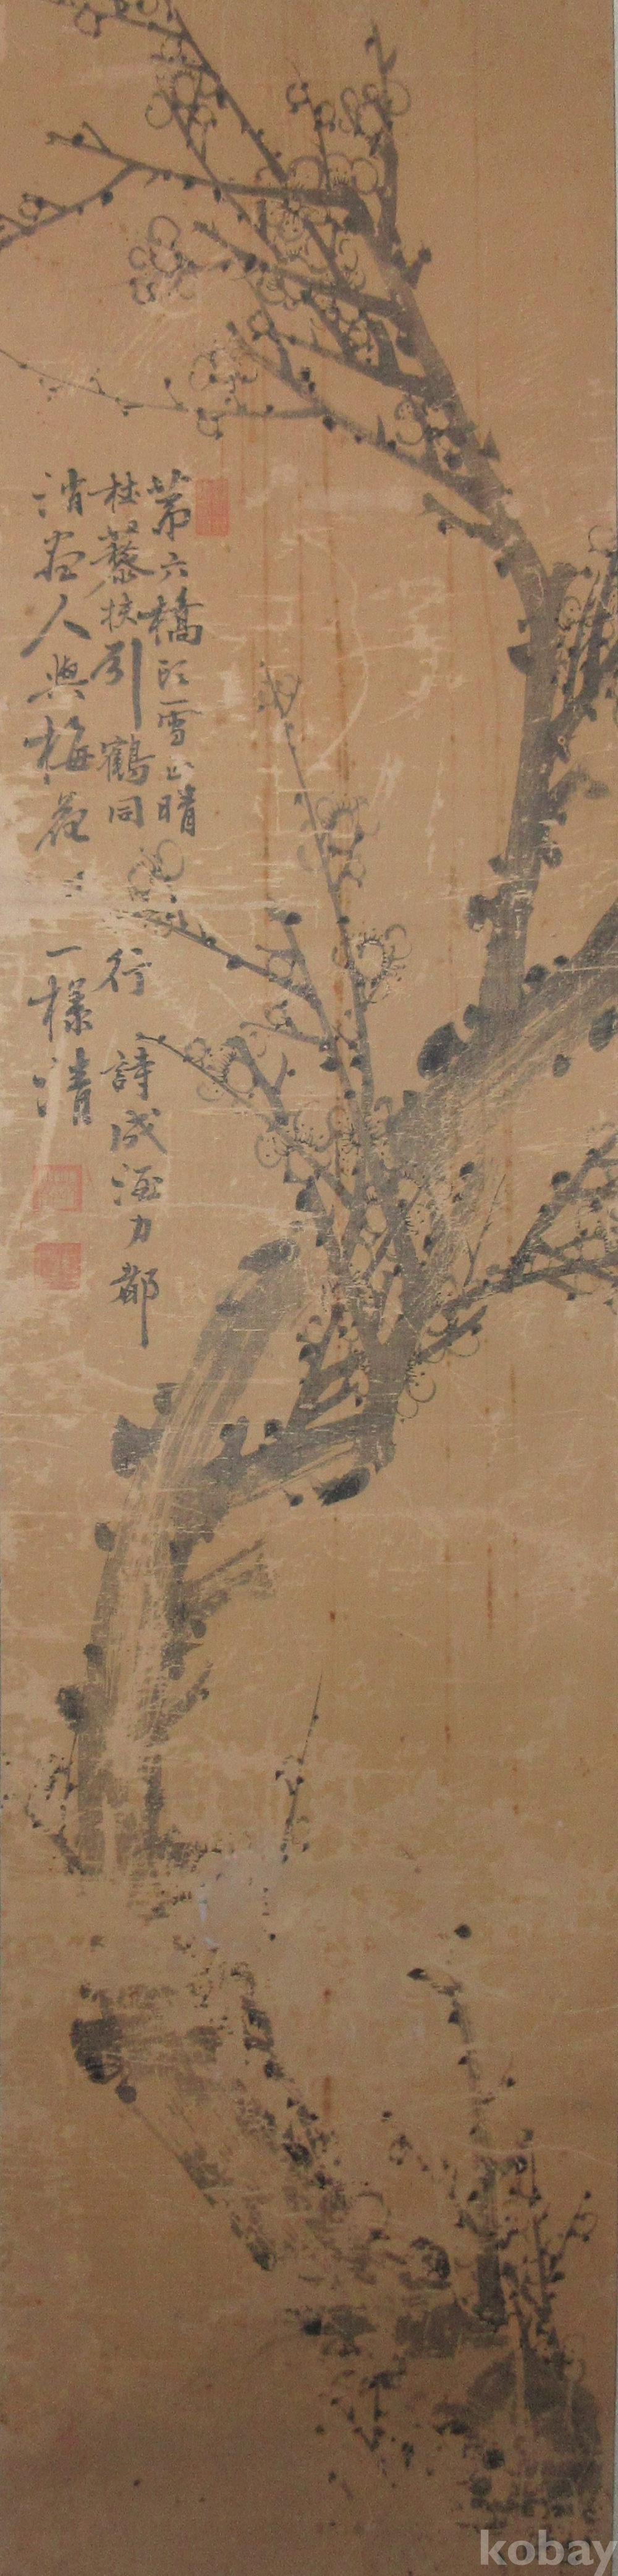 第六橋頭雪乍晴
杖藜扶引鶴同行 詩成酒力都
消盡人與梅花一樣清
kobay